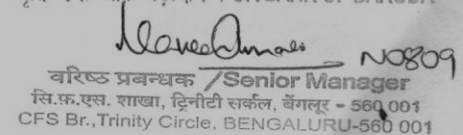 N0809
वरिष्ठ प्रबन्धक /Senior Manager
सि.फ़.एस. शाखा, ट्रिनीटी सर्कल, बेंगलूर - 560 001
CFS Br.,Trinity Circle, BENGALURU-560 001